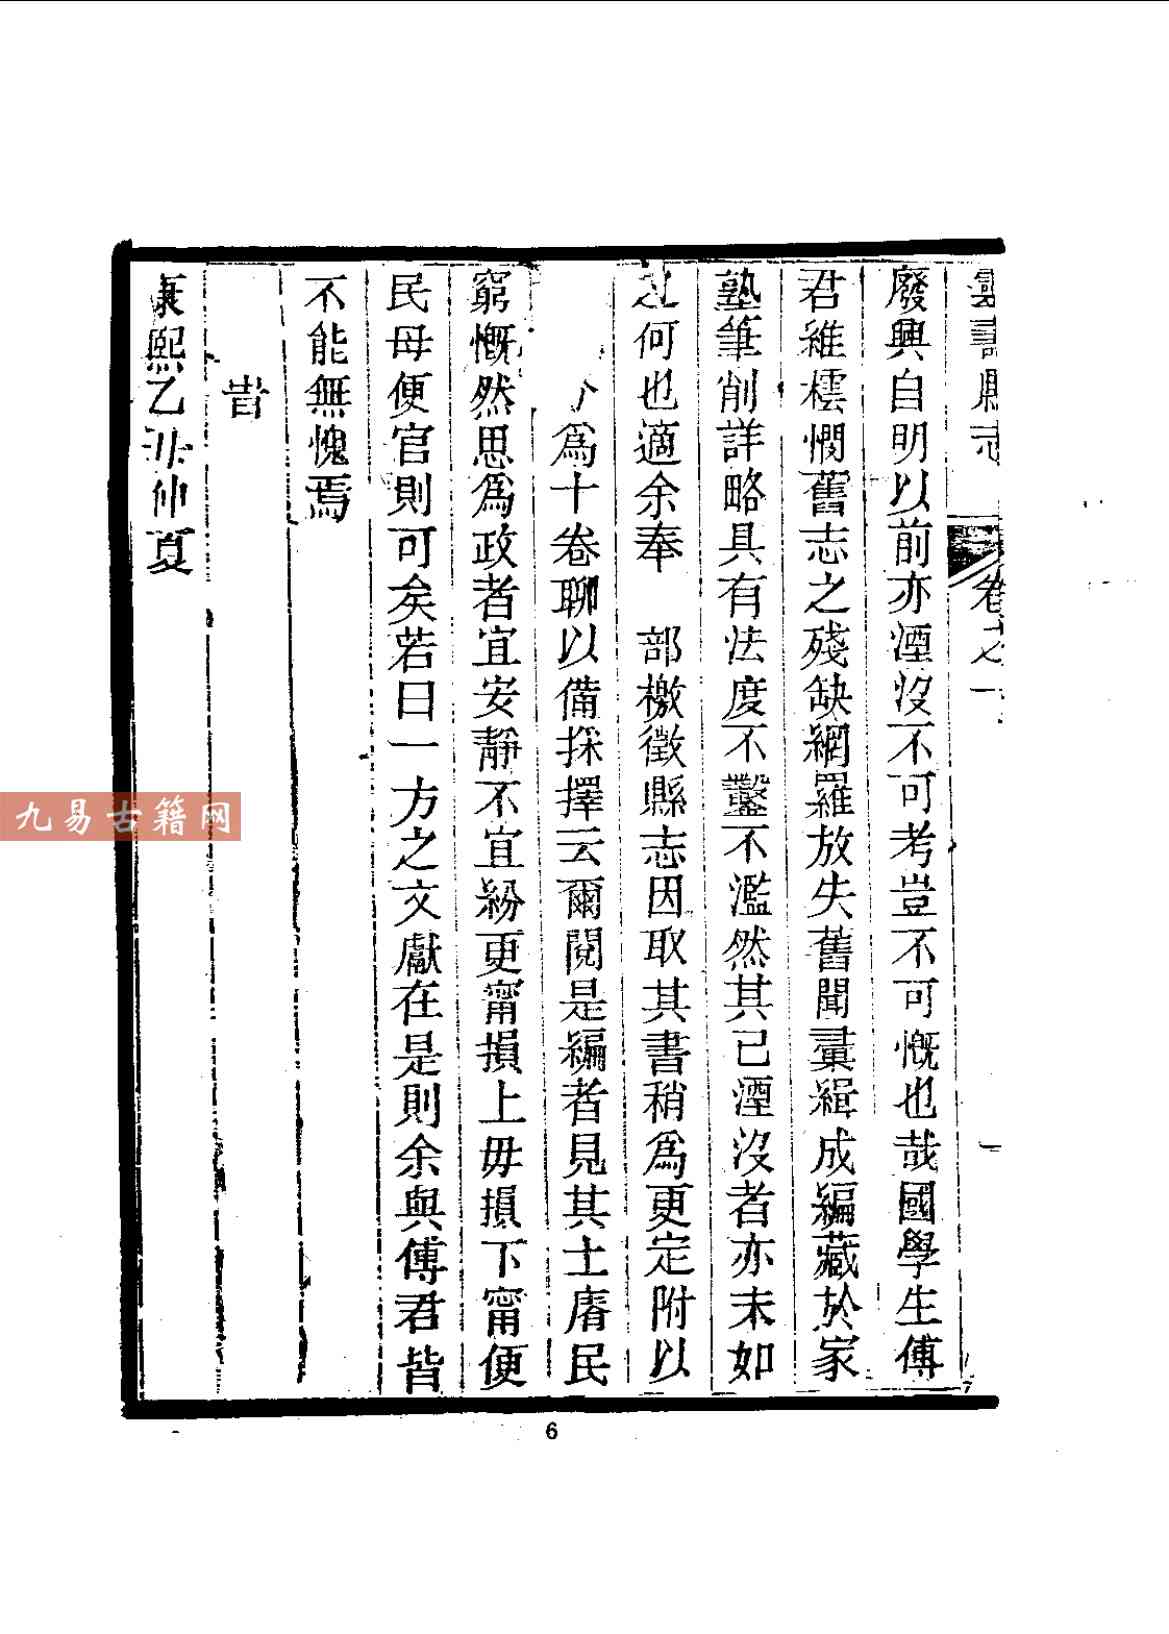 霄縣志 卷之一 一
廢興自明以前亦湮沒不可考豈不可慨也哉國學生傅
君維橒憫舊志之殘缺網羅放失舊聞彙緝成編藏於家
塾筆削詳略具有法度不鑿不濫然其已湮沒者亦未如
之何也適余奉 部檄徵縣志因取其書稍為更定附以
為十卷聊以備採擇云爾閱是編者見其土瘠民
窮慨然思為政者宜安靜不宜紛更甯損上毋損下甯便
民毋便官則可矣若曰一方之文獻在是則余與傅君皆
不能無愧焉
旹
康熙乙丑仲夏
九易古籍网
6